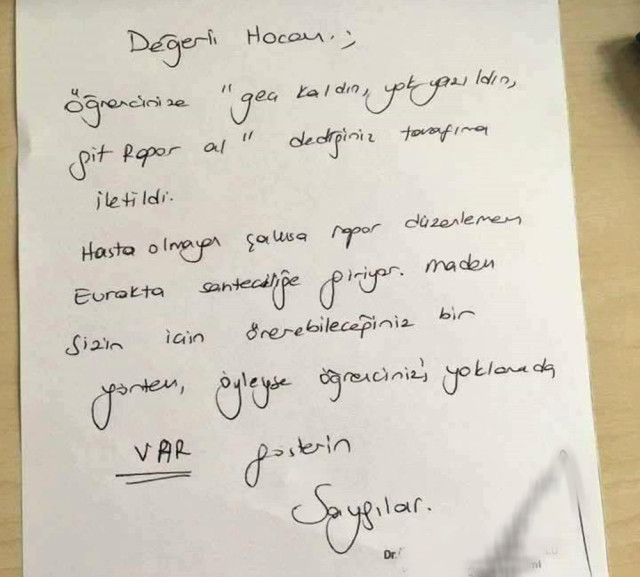 Değerli Hocam:;
Öğrencinize "geç kaldın, yok yazıldın,
git Rapor al" dediğiniz tarafıma
iletildi.
Hasta olmayan şahısa rapor düzenlemem
Evrakta sahteciliğe giriyor. madem
Sizin için önerebileceğiniz bir
yöntem, öyleyse öğrencinizi yoklamada
VAR gösterin
Saygılar.
Dr.